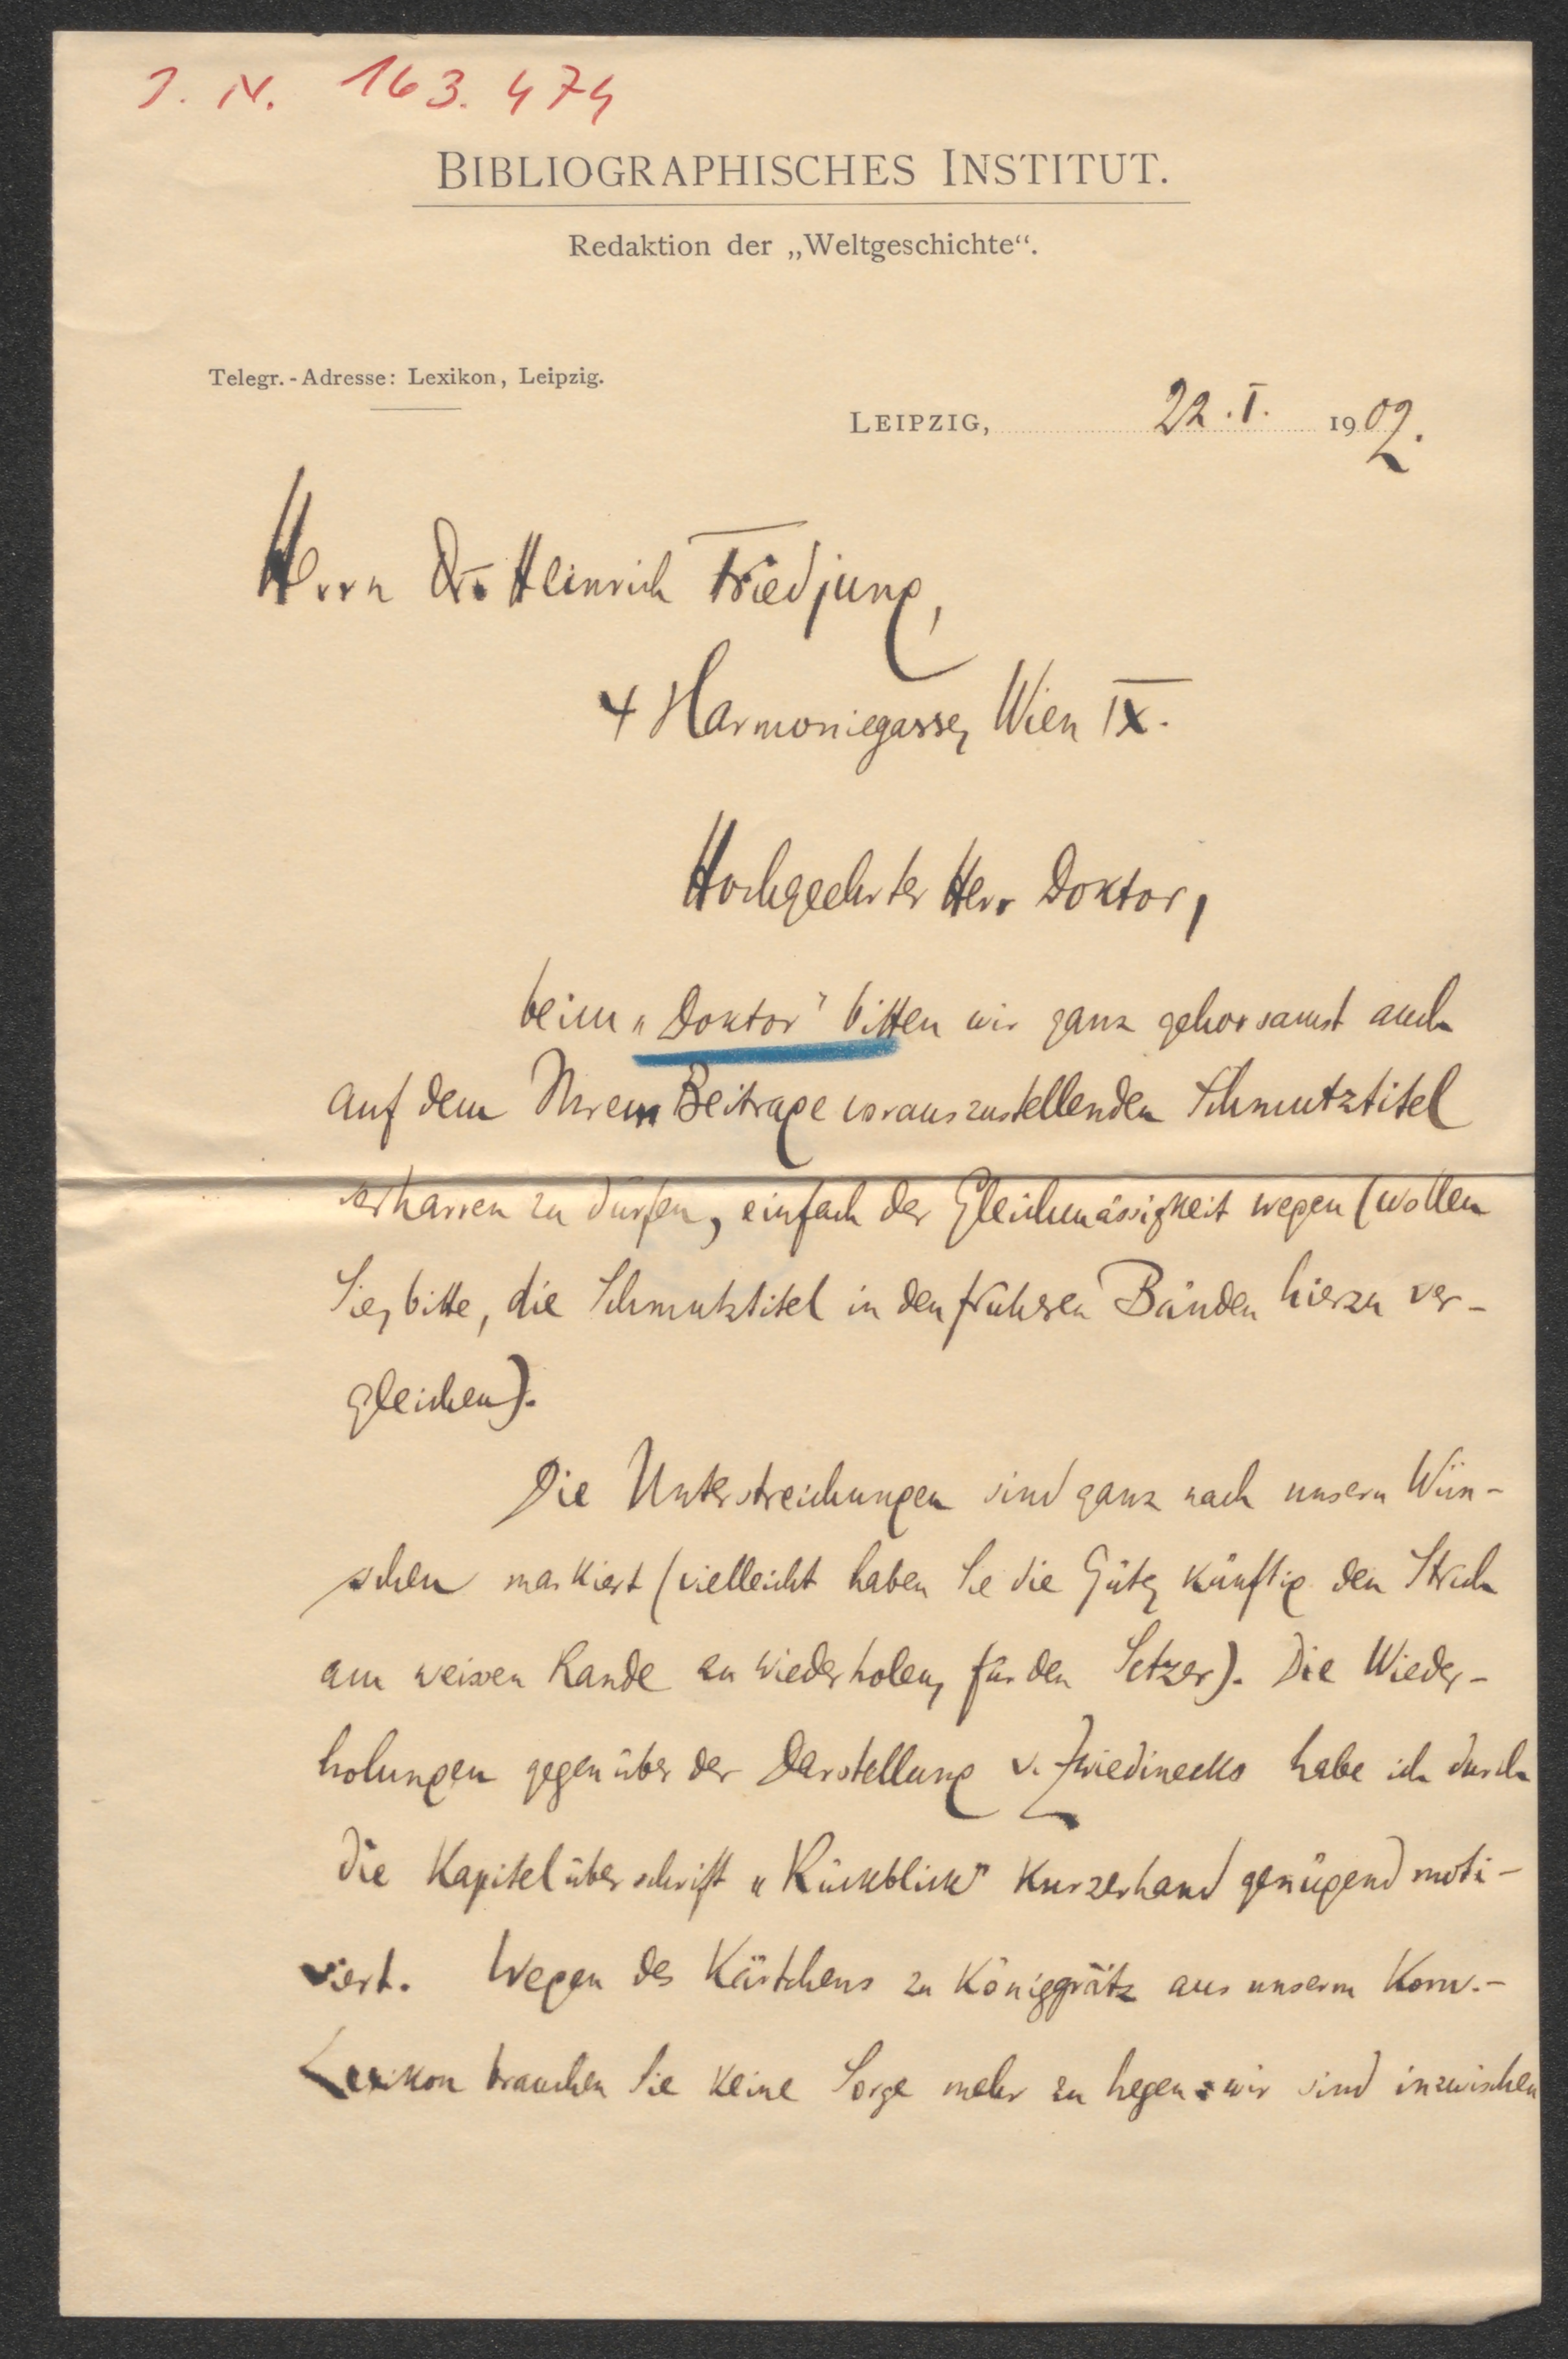 J. N. 163.474
BIBLIOGRAPHISCHES INSTITUT.
Redaktion der „Weltgeschichte“.
Telegr.-Adresse: Lexikon, Leipzig.
LEIPZIG, 22.I. 1902.
Herrn Dr. Heinrich Friedjung,
4 Harmoniegasse, Wien IX.
Hochgeehrter Herr Doktor,
beim „Doktor“ bitten wir ganz gehorsamst auch
auf dem Ihrem Beitrage vorauszustellenden Schmutztitel
verharren zu dürfen, einfach der Gleichmässigkeit wegen (wollen
Sie, bitte, die Schmutztitel in den frühren Bänden hierzu ver-
gleichen).
Die Unterstreichungen sind ganz nach unsern Wün-
schen markiert (vielleicht haben Sie die Güte, künftig den Strich
am weissen Rande zu wiederholen, für den Setzer). Die Wieder-
holungen gegenüber der Darstellung v. Zwiedinecks habe ich durch
die Kapitelüberschrift „Rückblick“ kurzerhand genügend moti-
viert. Wegen des Kärtchens zu Königgrätz aus unserm Konv.-
Lexikon brauchen Sie keine Sorge mehr zu hegen: wir sind inzwischen